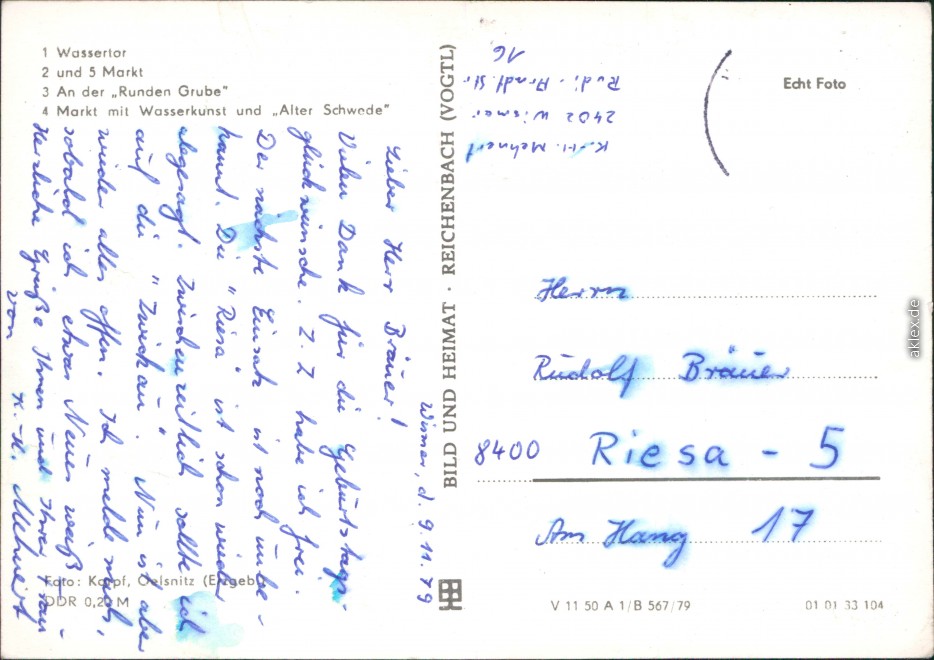 1 Wassertor
2 und 5 Markt
3 An der „Runden Grube"
4 Markt mit Wasserkunst und „Alter Schwede"
Wismar, d. 9. 11. 79
Lieber Herr Bräuer!
Vielen Dank für die Geburtstags-
glückwünsche. Z. Z habe ich frei.
Der nächste Einsatz ist noch unbe-
kannt. Die "Riesa" ist schon wieder
abgesagt. Zwischenzeitlich sollte ich
auf die "Zwickau". Nun ist aber
wieder alles offen. Ich melde mich,
sobald ich etwas Neues weiß.
Herzliche Grüße Ihnen und Ihrer Frau
von
K.-H. Mehnert
Foto: Karpf, Oelsnitz (Erzgeb.)
DDR 0,20 M
BILD UND HEIMAT · REICHENBACH (VOGTL)
K.-H. Mehnert
2402 Wismar
Rudi-Arndt.Str.
16
Echt Foto
Herrn
Rudolf Bräuer
8400 Riesa - 5
Am Hang 17
V 11 50 A 1/B 567/79
01 01 33 104
aklex.de